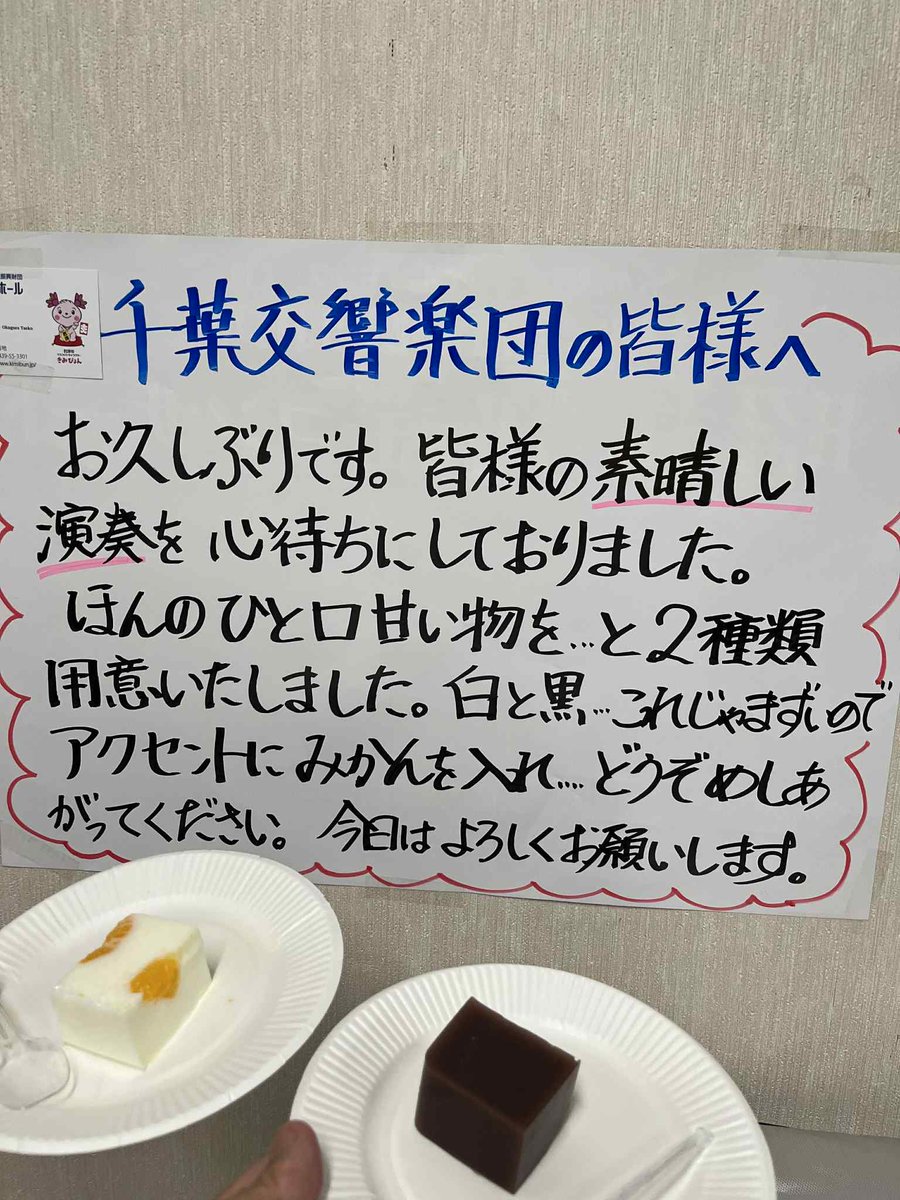 振興財団
ホール
Okagura Tasko
439-55-3301
www.kimibun.jp/
きみぴょん
千葉交響楽団の皆様へ
お久しぶりです。皆様の素晴しい
演奏を心待ちにしておりました。
ほんのひと口甘い物を…と2種類
用意いたしました。白と黒…これじゃまずいので
アクセントにみかんを入れ…どうぞめしあ
がってください。今日はよろしくお願いします。